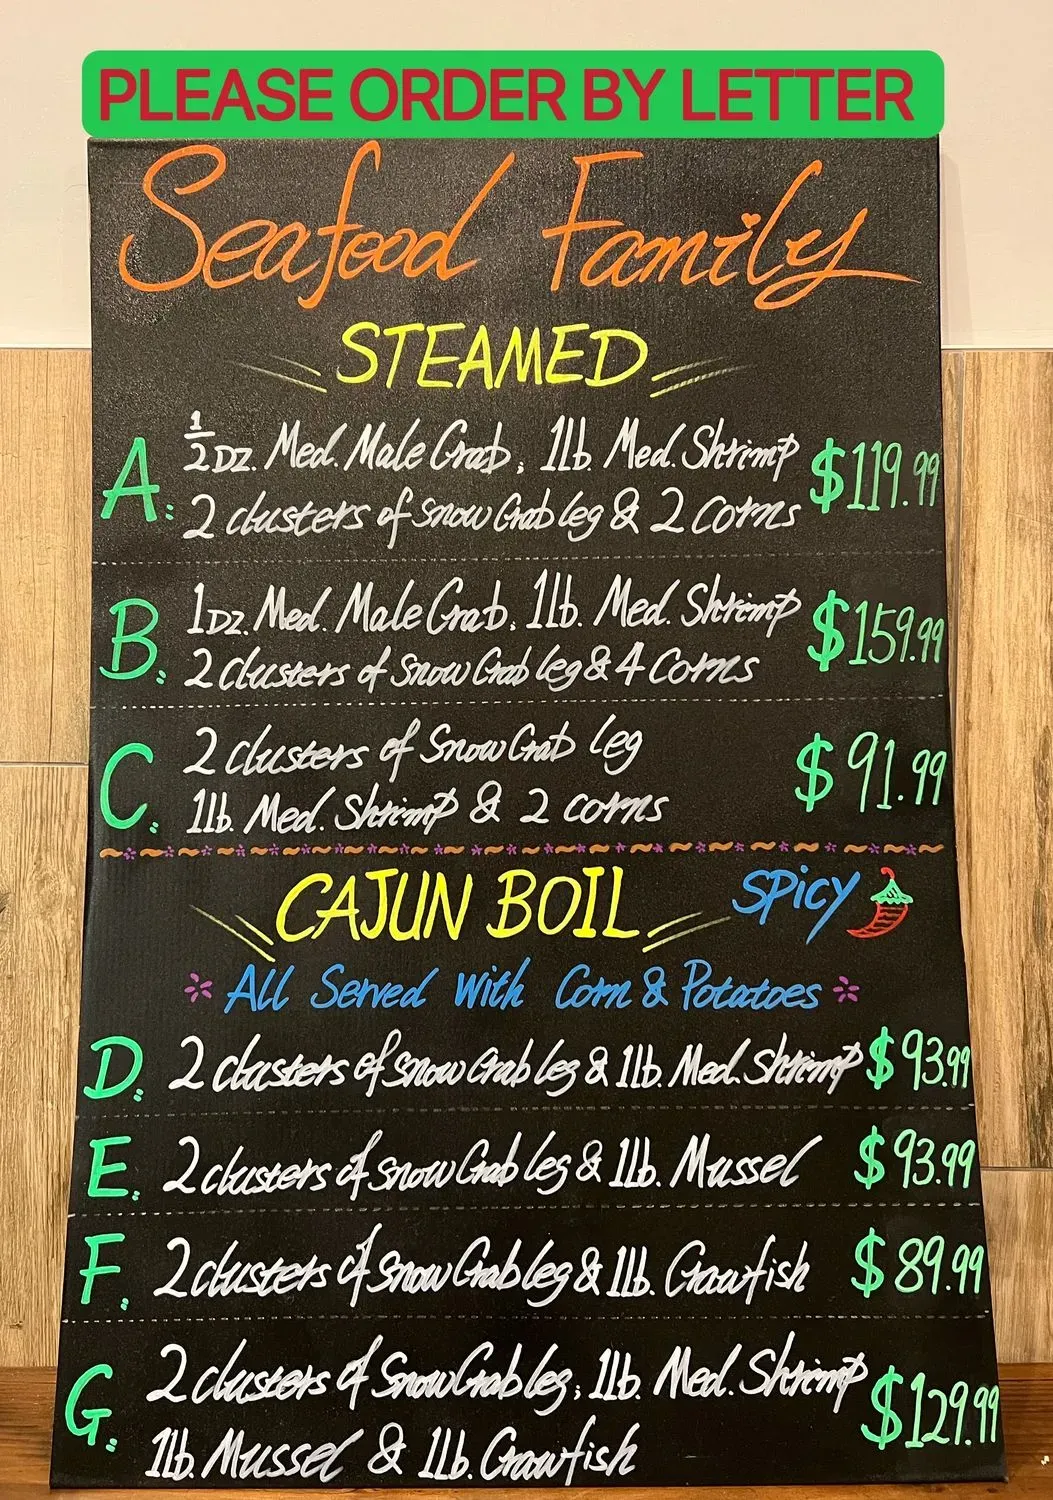 PLEASE ORDER BY LETTER
Seafood Family
STEAMED
A: 1/2 DZ. Med. Male Crab, 1lb. Med. Shrimp $119.99
2 clusters of Snow Crab leg & 2 corns
B: 1 DZ. Med. Male Crab, 1lb. Med. Shrimp $159.99
2 clusters of Snow Crab leg & 4 Corns
C: 2 clusters of Snow Crab leg $91.99
1lb. Med. Shrimp & 2 corns
CAJUN BOIL SPicy
All Served With Corn & Potatoes
D: 2 clusters of Snow Crab leg & 1lb. Med. Shrimp $93.99
E: 2 clusters of Snow Crab leg & 1lb. Mussel $93.99
F: 2 clusters of Snow Crab leg & 1lb. Crawfish $89.99
G: 2 clusters of Snow Crab leg, 1lb. Med. Shrimp $129.99
1lb. Mussel & 1lb. Crawfish